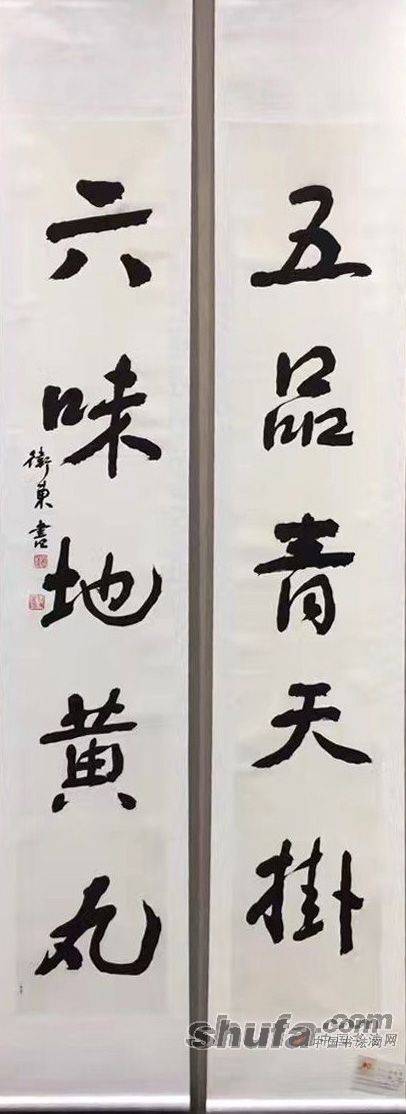 五品青天掛
六味地黄丸
衛東書
shufa.com
中国书法网